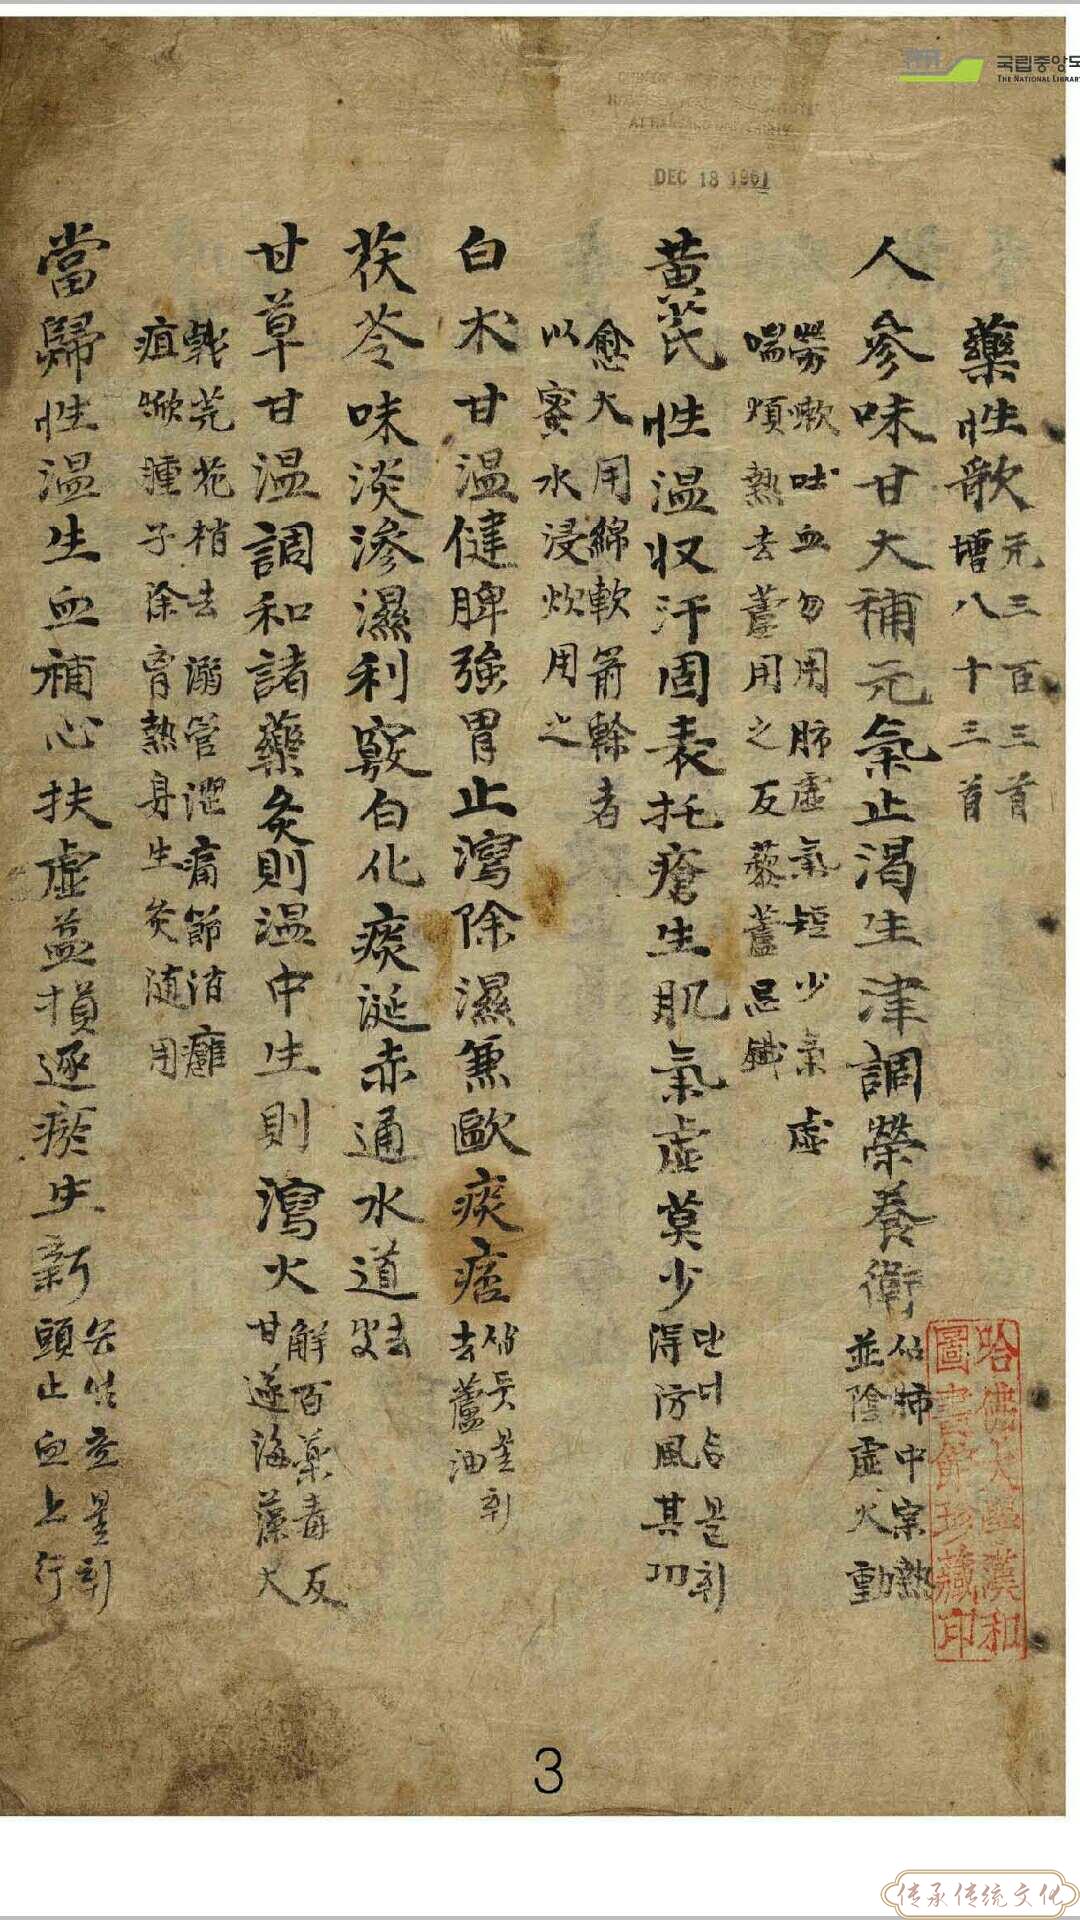 국립중앙도
THE NATIONAL LIBRARY
DEC 18 1961
藥性歌 元三百三首
增八十三首
人參味甘大補元氣止渴生津調榮養衛 肺中宗熱
並陰虛火動
勞嗽吐血勿用肺虛氣短少氣虛
喘煩熱去蘆用之反藜蘆忌鐵
黃芪性温収汗固表托瘡生肌氣虛莫少 단너삼불휘
得防風其功
愈大用綿軟箭幹者
以蜜水浸炊用之
白朮甘温健脾強胃止瀉除濕兼歐痰痞 삽듓불휘
去蘆油
茯苓味淡滲濕利竅白化痰涎赤通水道 去
皮
甘草甘温調和諸藥灸則温中生則瀉火 解百藥毒反
甘遂海藻大
戟芫花梢去溺管澀痛節消癰
疽焮腫子除胃熱身生灸随用
當歸性温生血補心扶虛益損逐瘀生新
頭止血上行
哈佛大學漢和
圖書館珍藏印
3
传承传统文化